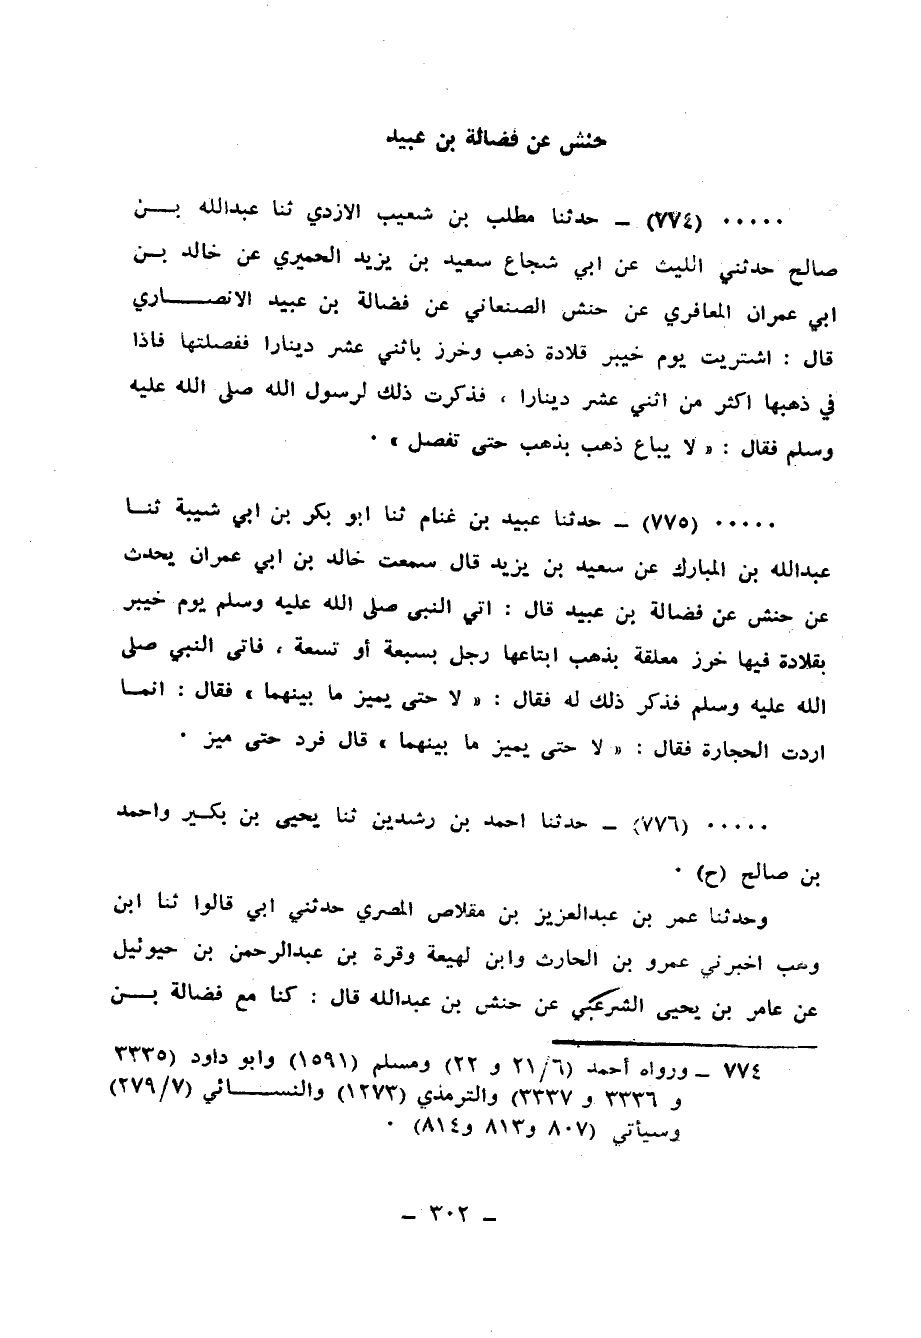 حنش عن فضالة بن عبيد
٠٠٠٠٠ (٧٧٤) ــ حدثنا مطلب بن شعيب الازدي ثنا عبدالله بـــن
صالح حدثني الليث عن ابي شجاع سعيد بن يزيد الحميري عن خالد بـن
ابي عمران المعافري عن حنش الصنعاني عن فضالة بن عبيد الانصـــــاري
قال : اشتريت يوم خيبر قلادة ذهب وخرز باثني عشر دينارا ففصلتها فاذا
في ذهبها اكثر من اثني عشر دينارا ، فذكرت ذلك لرسول الله صلى الله عليه
وسلم فقال : « لا يباع ذهب بذهب حتى تفصل » ٠
٠٠٠٠٠ (٧٧٥) ــ حدثنا عبيد بن غنام ثنا ابو بكر بن ابي شيبة ثنـا
عبدالله بن المبارك عن سعيد بن يزيد قال سمعت خالد بن ابي عمران يحدث
عن حنش عن فضالة بن عبيد قال : اتي النبي صلى الله عليه وسلم يوم خيبر
بقلادة فيها خرز معلقة بذهب ابتاعها رجل بسبعة أو تسعة ، فاتى النبي صلى
الله عليه وسلم فذكر ذلك له فقال : « لا حتى يميز ما بينهما » فقال : انمـا
اردت الحجارة فقال : « لا حتى يميز ما بينهما » قال فرد حتى ميز ٠
٠٠٠٠٠ (٧٧٦) ــ حدثنا احمد بن رشدين ثنا يحيى بن بكـير واحمد
بن صالح (ح) ٠
وحدثنا عمر بن عبدالعزيز بن مقلاص المصري حدثني ابي قالوا ثنا ابن
وهب اخبرني عمرو بن الحارث وابن لهيعة وقرة بن عبدالرحمن بن حيوئيل
عن عامر بن يحيى الشرعبي عن حنش بن عبدالله قال : كنا مع فضالة بـــن
٧٧٤ ــ ورواه أحمد (٢١/٦ و ٢٢) ومسلم (١٥٩١) وابو داود (٣٣٣٥
و ٣٣٣٦ و ٣٣٣٧) والترمذي (١٢٧٣) والنســـــائي (٢٧٩/٧)
وسيأتي (٨٠٧ و٨١٣ و٨١٤) ٠
ــ ٣٠٢ ــ